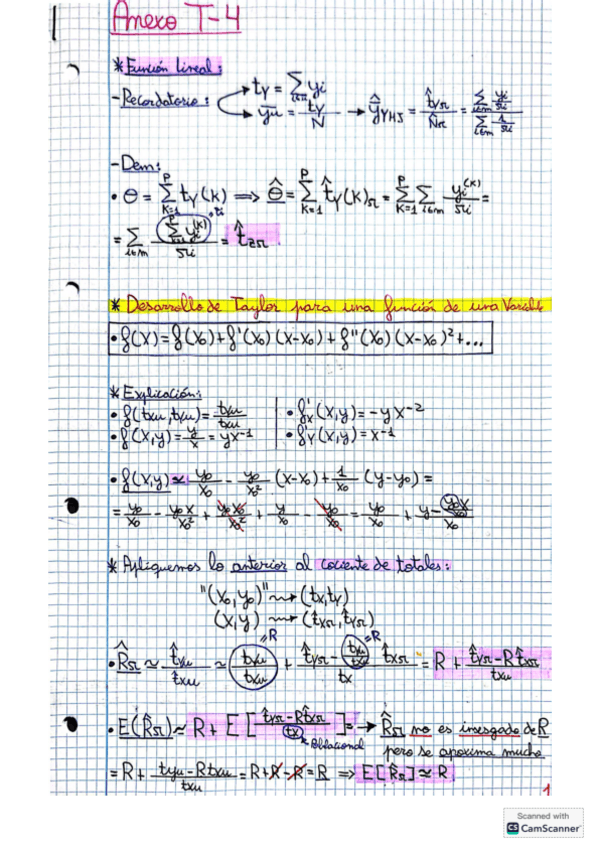 Anexo T-4
* Función lineal:
- Recordatorio: t_Y = Σ_{i∈u} y_i
ȳ_u = t_Y/N → ŷ_{YHJ} = t̂_{Yπ}/N̂_π = (Σ_{i∈m} y_i/π_i)/(Σ_{i∈m} 1/π_i)
- Dem:
• Θ = Σ_{K=1}^{P} t_Y(K) ⟹ Θ̂ = Σ_{K=1}^{P} t̂_Y(K)_π = Σ_{K=1}^{P} Σ_{i∈m} y_i^{(K)}/π_i =
= Σ_{i∈m} (Σ_{K=1}^{P} y_i^{(K)})/π_i = t̂_{zπ}
* Desarrollo de Taylor para una función de una Variable
• f(x) = f(x₀) + f'(x₀)(x-x₀) + f''(x₀)(x-x₀)² + ...
* Explicación:
• f(t_{xu}, t_{yu}) = t_{yu}/t_{xu} | • f'_x(x,y) = -yx^{-2}
• f(x,y) = y/x = yx^{-1} | • f'_y(x,y) = x^{-1}
• f(x,y) ≃ y₀/x₀ - y₀/x₀² (x-x₀) + 1/x₀ (y-y₀) =
= y₀/x₀ - y₀x/x₀² + y₀x₀/x₀² + y/x₀ - y₀/x₀ = y₀/x₀ + (y - y₀x/x₀)/x₀
* Apliquemos lo anterior al cociente de totales:
"(x₀,y₀)" ⇝ (t_x,t_y)
(x,y) ⇝ (t̂_{xπ}, t̂_{yπ})
=R =R
• R̂_π ≃ t̂_{yu}/t̂_{xu} ≃ t_{yu}/t_{xu} + (t̂_{yπ} - t_{yu}/t_{xu} t̂_{xπ})/t_x = R + (t̂_{yπ} - R t̂_{xπ})/t_{xu}
• E(R̂_π) ≃ R + E[(t̂_{yπ} - R t̂_{xπ})/t_x] = → R̂_π no es insesgado de R
Poblacional pero se aproxima mucho
= R + (t_{yu} - R t_{xu})/t_{xu} = R + R - R = R ⟹ E[R̂_π] ≃ R
1
Scanned with
CS CamScanner